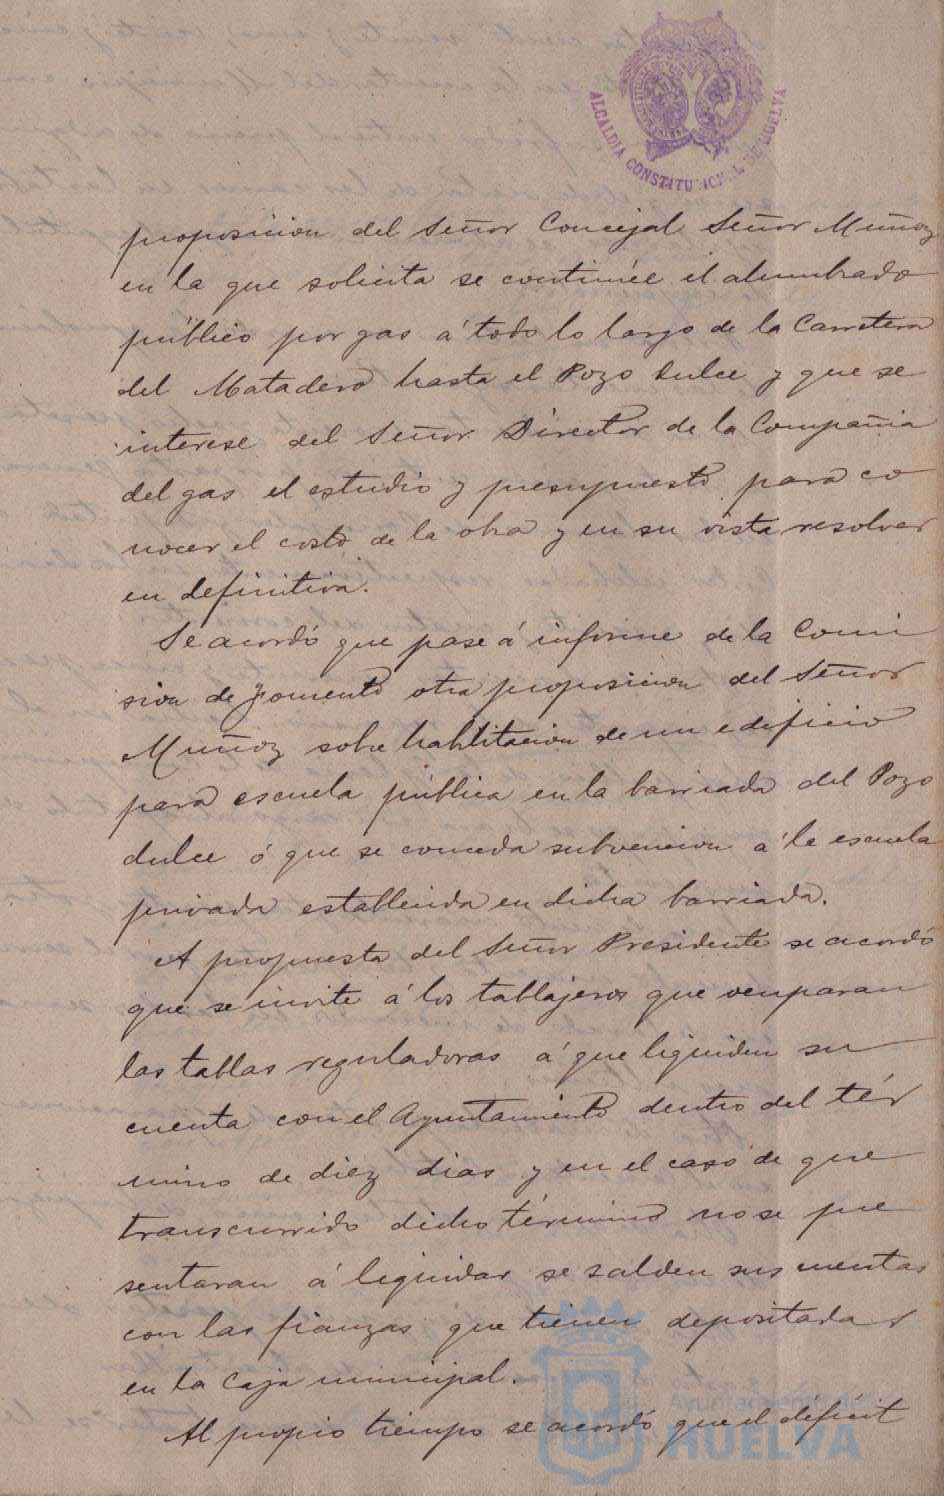 ALCALDIA CONSTITUCIONAL DE HUELVA
proposicion del Señor Concejal Señor Muñoz
en la que solicita se continúe el alumbrado
público por gas á todo lo largo de la Carretera
del Matadero hasta el Pozo dulce y que se
interese del Señor Director de la Compañia
del gas el estudio y presupuesto para co
nocer el costo de la obra y en su vista resolver
en definitiva.
Se acordó que pase á informe de la Comi
sion de Fomento otra proposicion del Señor
Muñoz sobre habilitacion de un edificio
para escuela pública en la barriada del Pozo
dulce ó que se conceda subvencion á la escuela
privada establecida en dicha barriada.
A propuesta del Señor Presidente se acordó
que se invite á los tablajeros que ocuparan
las tablas reguladoras á que liquiden su
cuenta con el Ayuntamiento dentro del tér
mino de diez dias y en el caso de que
transcurrido dicho término no se pre
sentaran á liquidar se salden sus cuentas
con las fianzas que tienen depositadas
en la Caja municipal.
Al propio tiempo se acordó que el déficit
Ayuntamiento de
HUELVA